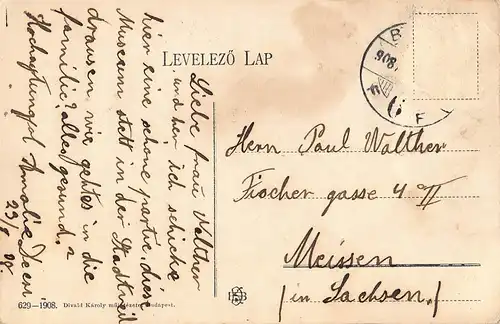 LEVELEZŐ LAP
Liebe Frau Walther
und Herr ich schicke
hier eine schöne partie, diese
Museum stett in der Stadtweil
draussen wie gehtes in die
familie? alles gesund?
Hochaytungsvol Amalie
23/
Herrn Paul Walther
Fischer gasse 4 II
Meissen
(in Sachsen.)
B
908
F
629-1908. Divald Károly Budapest.